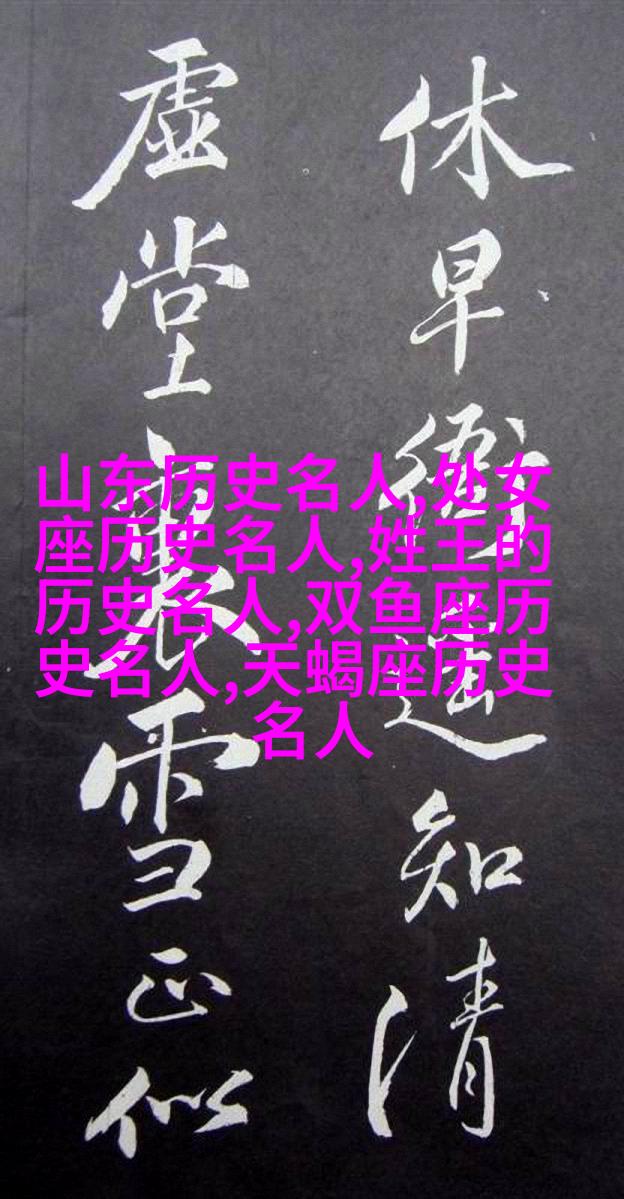 休早衙遥知清
虚堂裏雪正似
山东历史名人,处女
座历史名人,姓王的
历史名人,双鱼座历
史名人,天蝎座历史
名人